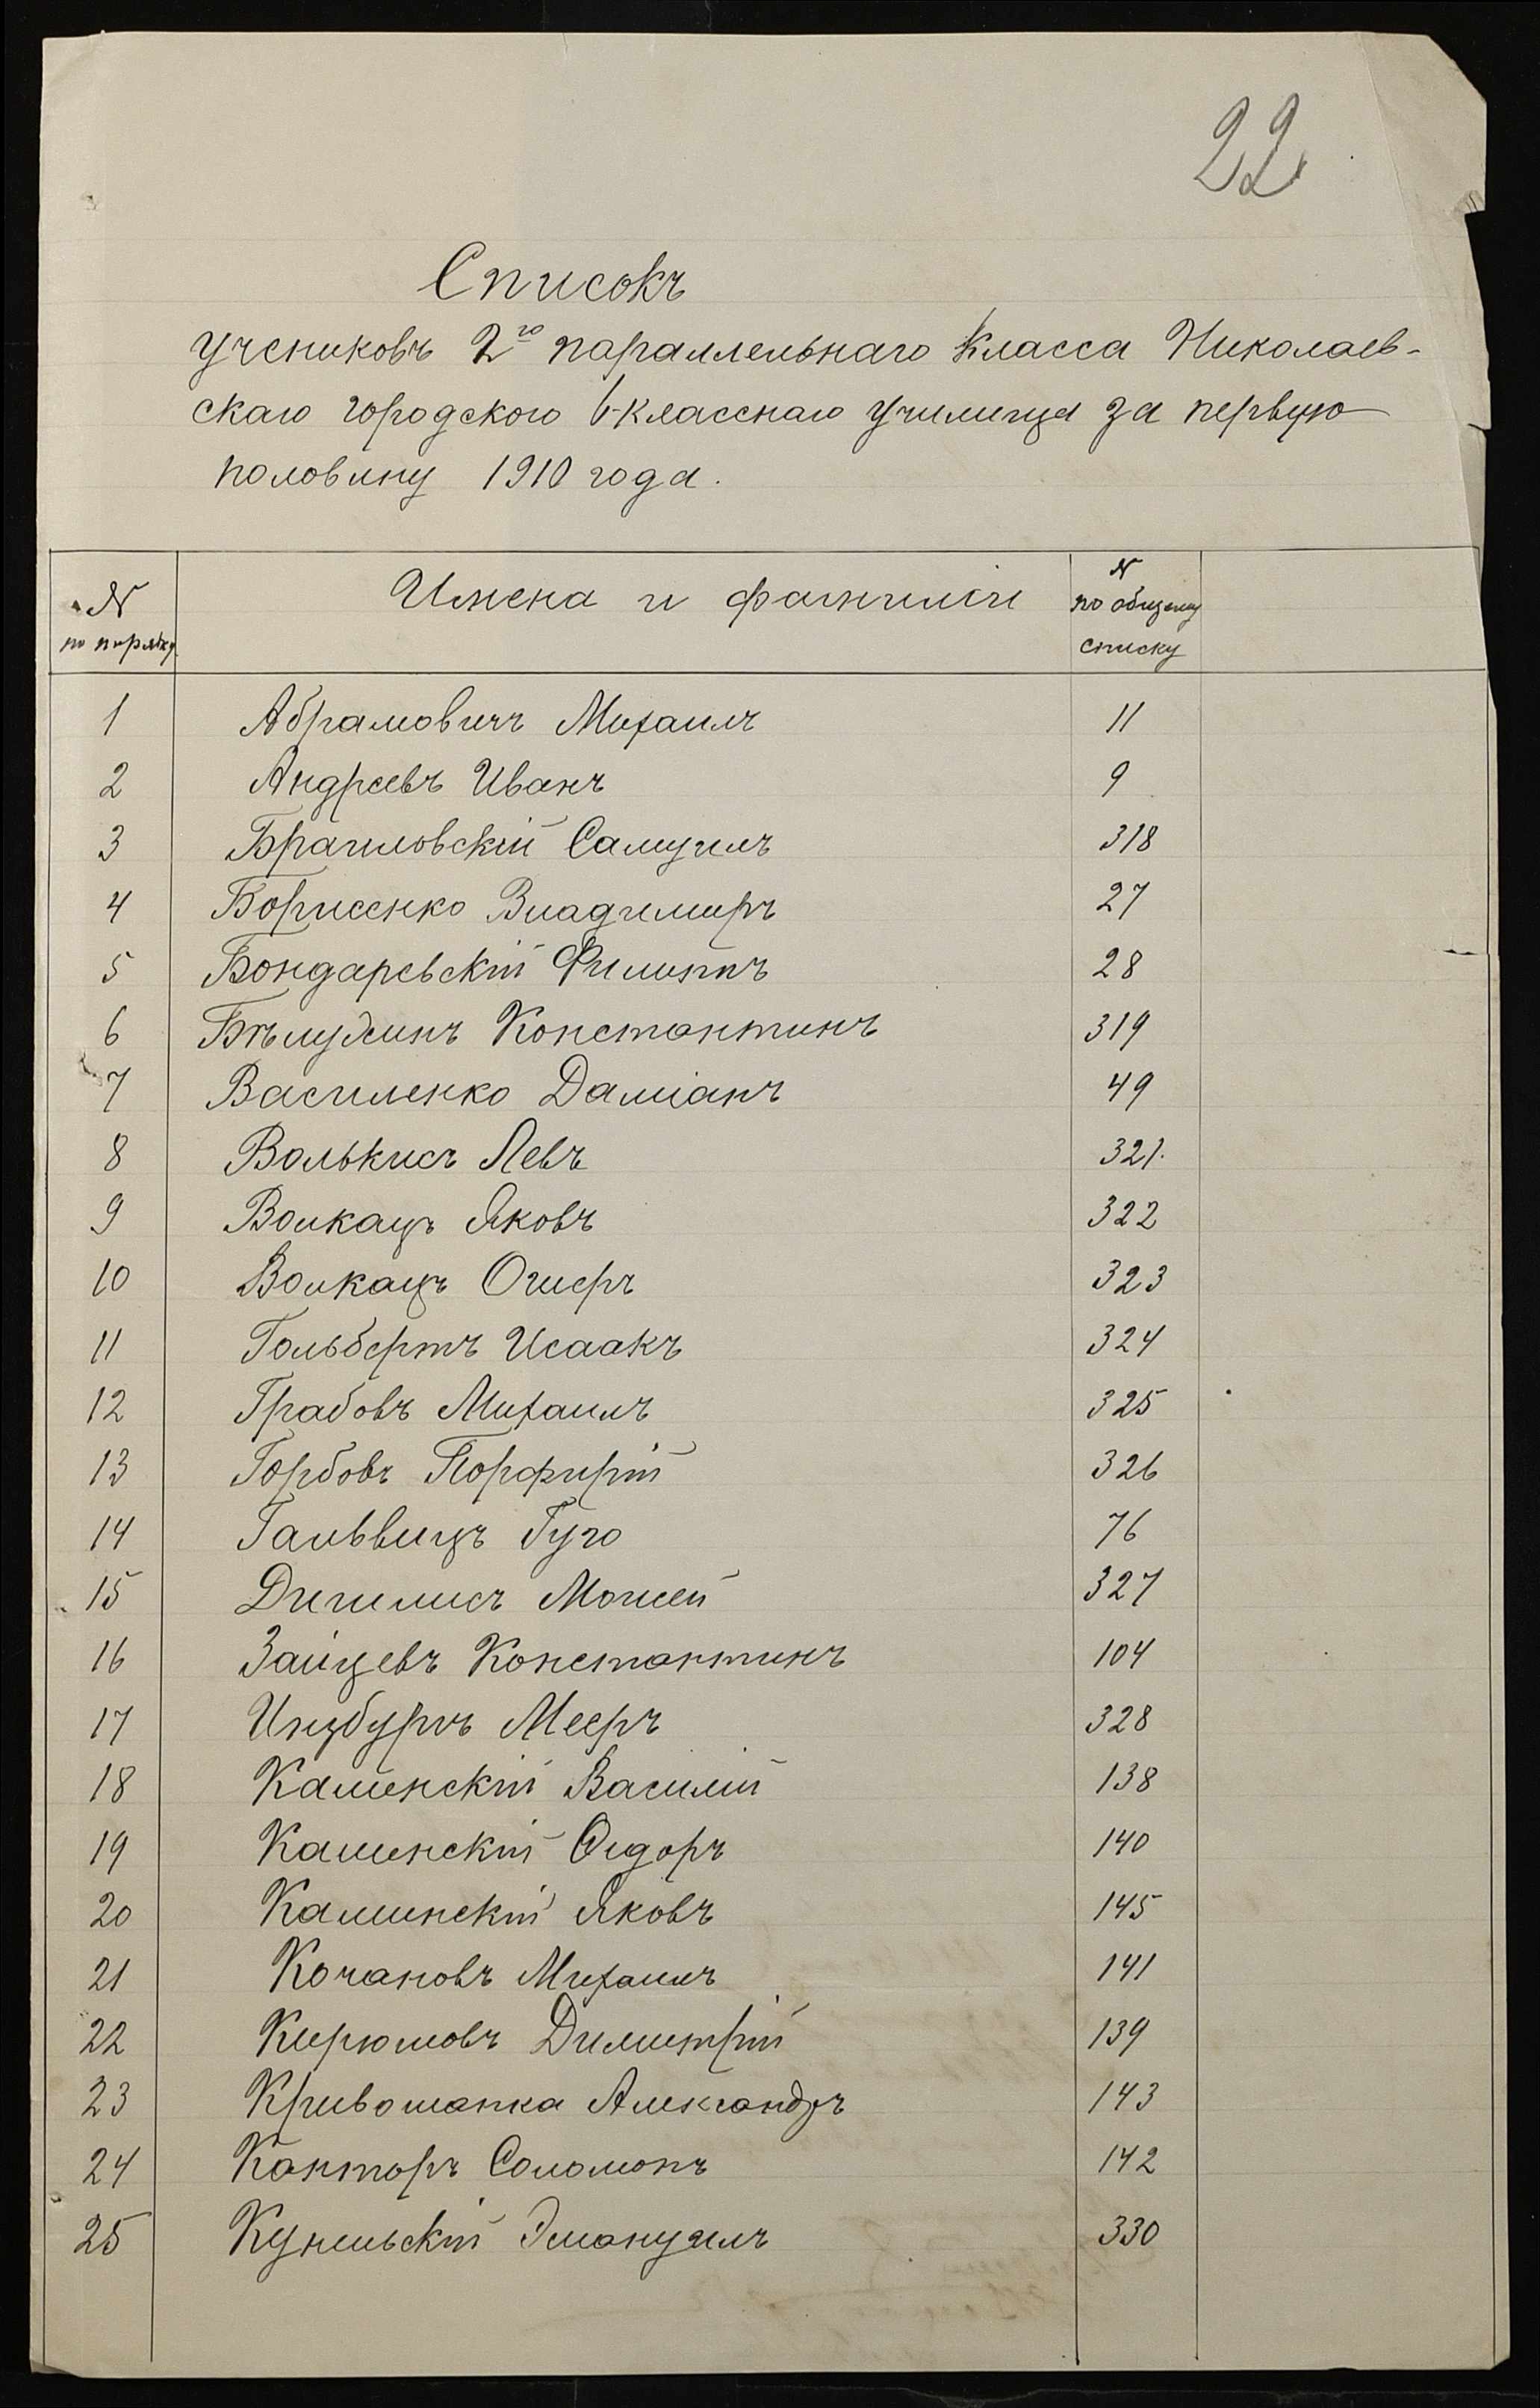 22
Списокъ
учениковъ 2го параллельнаго класса Николаев-
скаго городского 6-класснаго училища за первую
половину 1910 года.
N по порядку Имена и фамиліи N по общему списку
1 Абрамовичъ Михаилъ 11
2 Андреевъ Иванъ 9
3 Браиловскій Самуилъ 318
4 Борисенко Владимиръ 27
5 Бондаревскій Филиппъ 28
6 Константинъ 319
7 Василенко Даміанъ 49
8 Волькисъ Левъ 321.
9 Волкацъ Яковъ 322
10 Волкацъ Ошеръ 323
11 Гольбертъ Исаакъ 324
12 Грабовъ Михаилъ 325
13 Горбовъ Порфирій 326
14 Гальвицъ Гуго 76
15 Дигилисъ Моисей 327
16 Зайцевъ Константинъ 104
17 Инцбургъ Мееръ 328
18 Каменскій Василій 138
19 Каминскій Ѳедоръ 140
20 Каминскій Яковъ 145
21 Кочановъ Михаилъ 141
22 Кирюмовъ Димитрій 139
23 Кривошапка Александръ 143
24 Канторъ Соломонъ 142
25 Кунельскій Эмануилъ 330